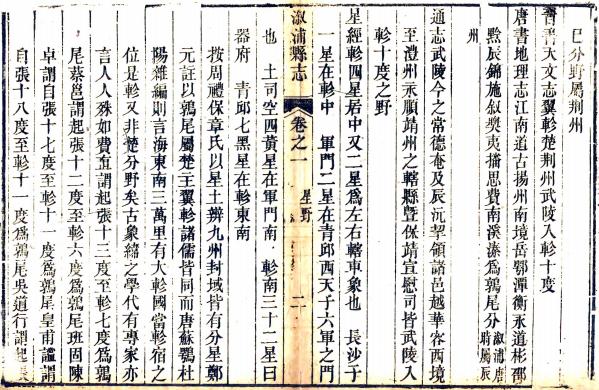 巳分野屬荆州
晉書天文志翼軫楚荆州武陵入軫十度
唐書地理志江南道古揚州南境岳鄂潭衡永道彬邵
黔辰錦施叙奬夷播思費南溪溱爲鶉尾分溆浦唐時屬辰
州
通志武陵今之常德奄及辰沅挈領諸邑越華容西境
至澧州永順靖州之轄縣曁保靖宣慰司皆武陵入
軫十度之野
星經軫四星居中又二星爲左右轄車象也 長沙子
一星在軫中 軍門二星在青邱西天子六軍之門
也 土司空四黃星在軍門南 軫南三十二星曰
器府 青邱七黑星在軫東南
溆浦縣志
卷之一
星野
二
按周禮保章氏以星土辨九州封域皆有分星鄭
元註以鶉尾屬楚主翼軫諸儒皆同而唐蘇鶚杜
陽雜編則言海東南三萬里有大軫國當軫宿之
位是軫又非楚分野矣古象緯之學代有專家亦
言人人殊如費直謂起張十三度至軫七度爲鶉
尾蔡邕謂起張十二度至軫六度爲鶉尾班固陳
卓謂自張十七度至軫十一度爲鶉尾皇甫謐謂
自張十八度至軫十一度爲鶉尾吳道行謂起張